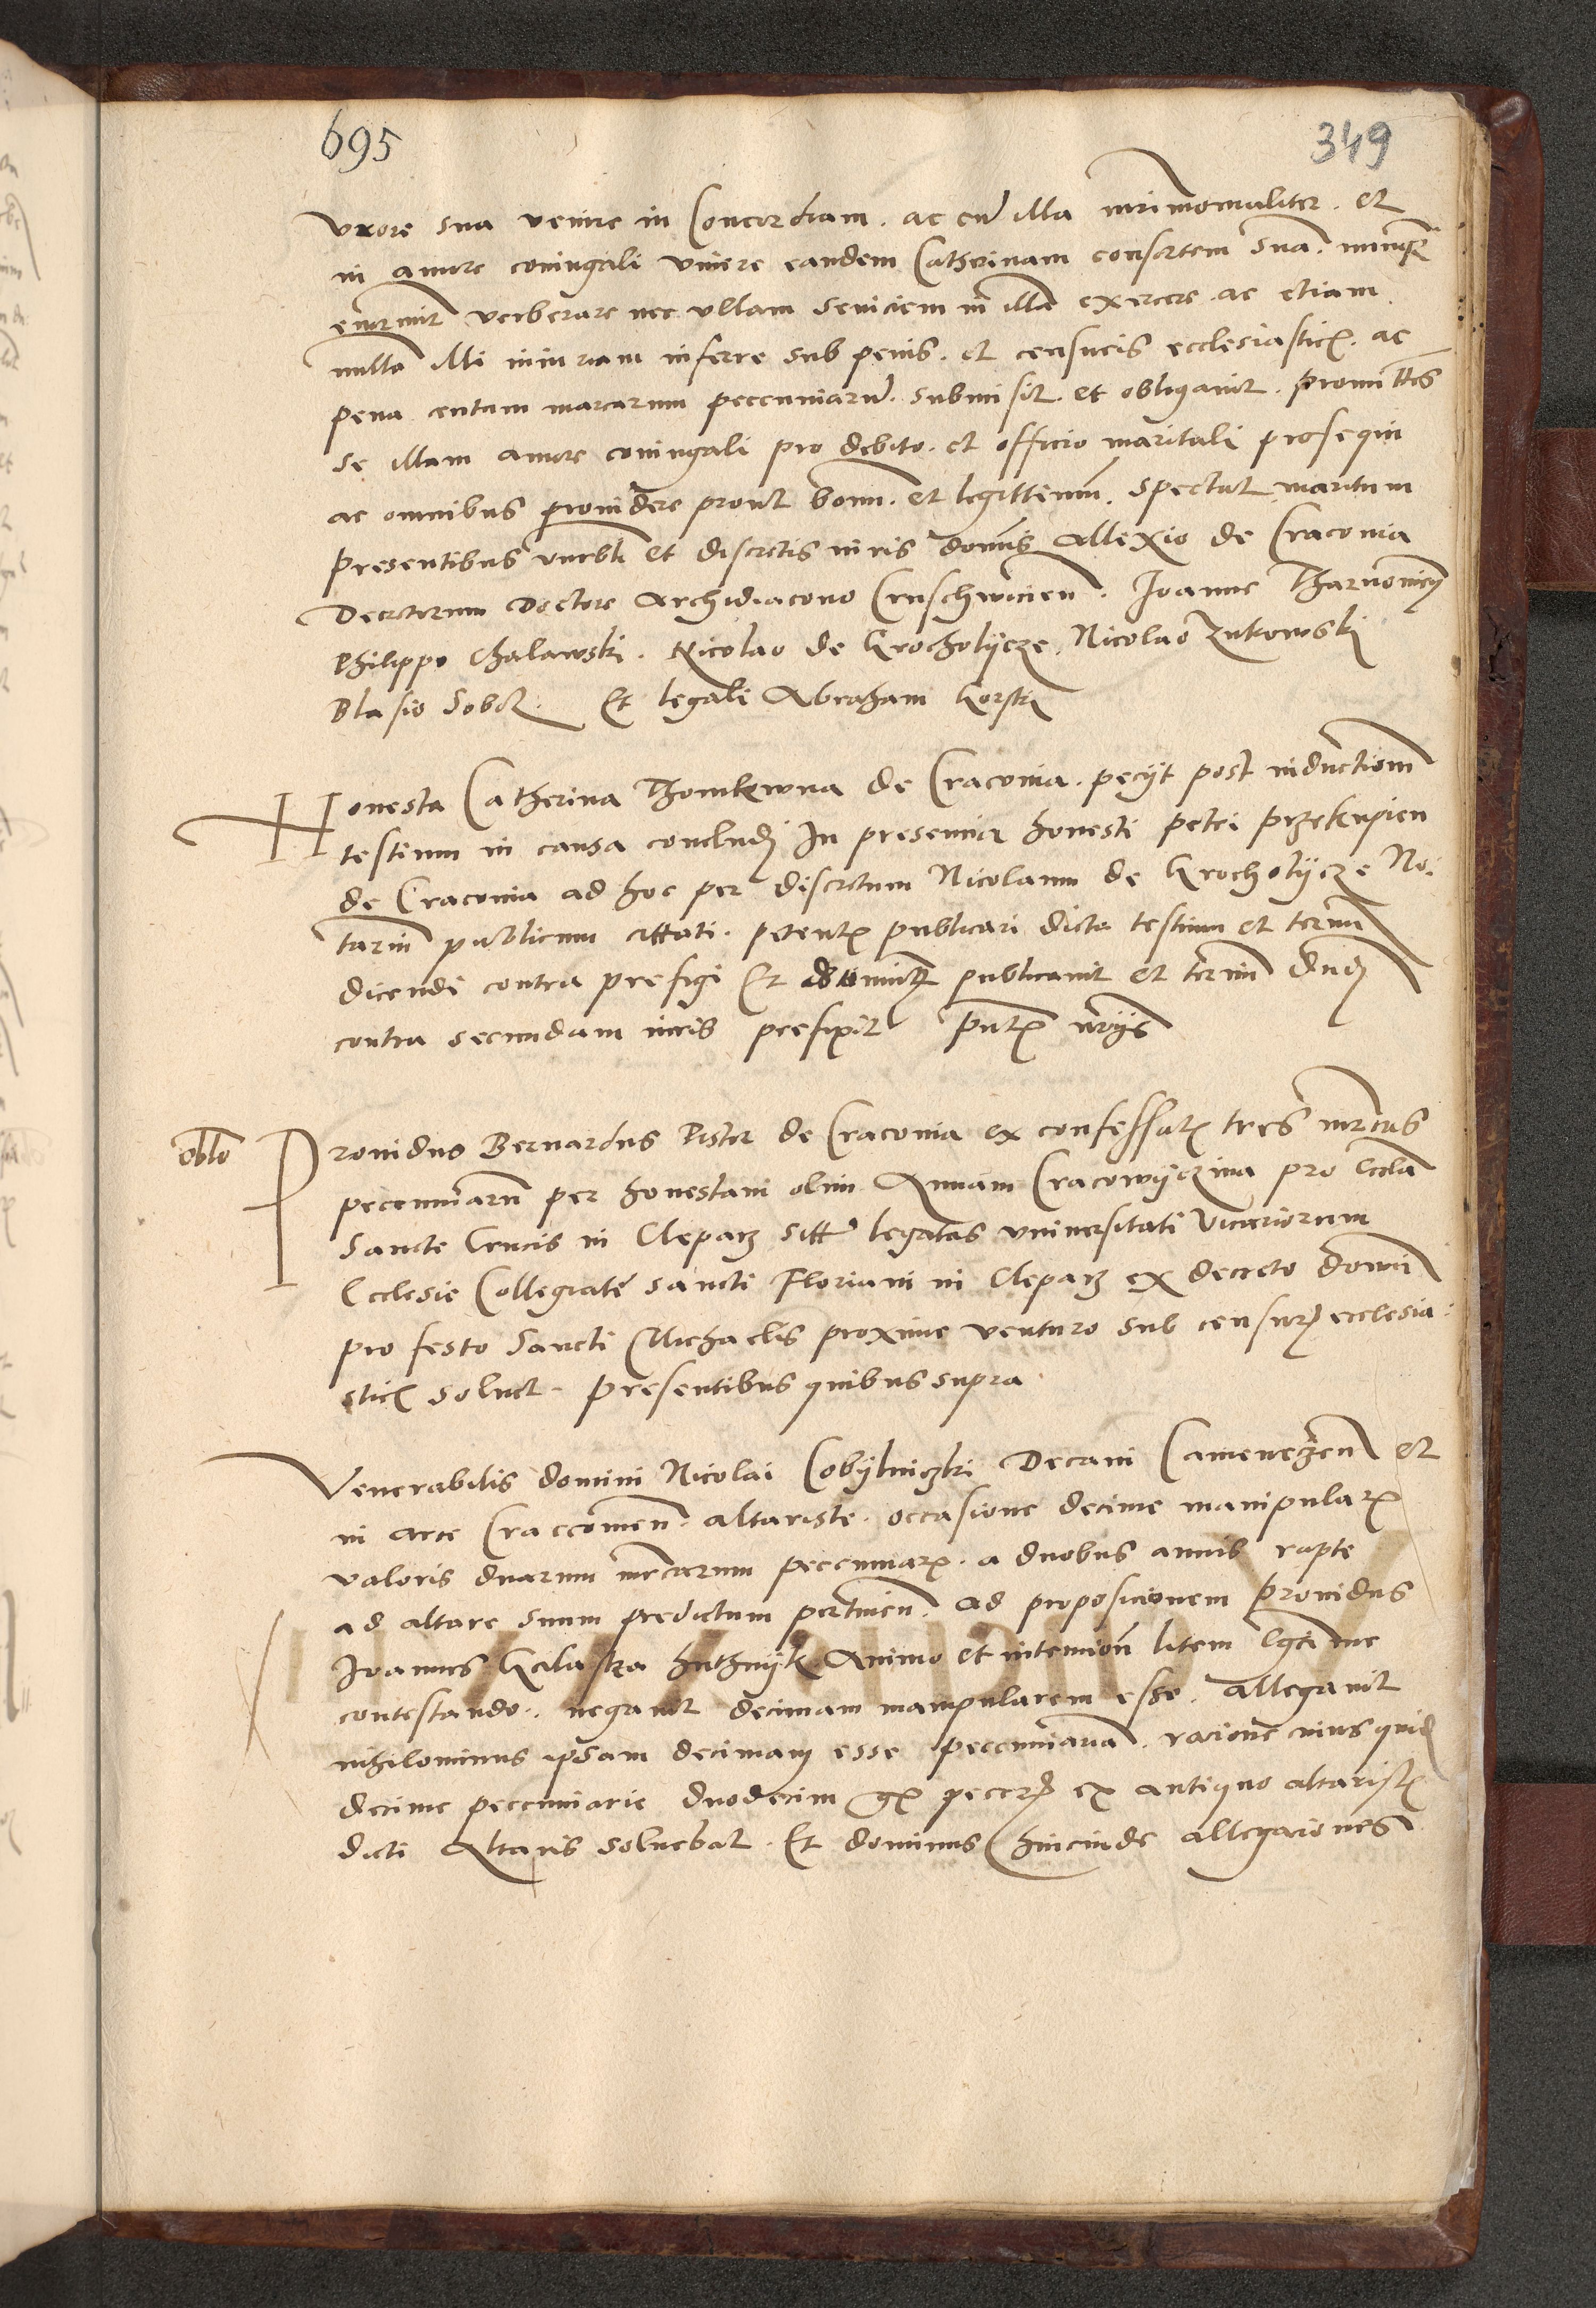 695
349
vxore sua venire in Concordiam . ac cum illa mrimonialiter . et
in amore coniugali viuere eandem Catherinam consortem suam .
verberare nec vllam seuiciem in illa exercere . ac etiam
nulla illi iniuriam inferre sub penis . et censuris ecclesiastic . ac
pena centum marcarum pecuniarum . submisit . et obligauit . promittens
se illam amore coniugali pro debito . et officio maritali prosequi
ac omnibus prouidere prout bonum . et legittimum . spectat maritum
presentibus venerbli et discretis viris dominis Allexio de Craconia
Decretorum Doctore Archidiacono Cruschwicien . Joanne Tharnowicz
Philippo Chalawski . Nicolao de Grocholycze . Nicolao Zukowski
Blasio Sobek . Et legali Abraham Gorski
Honesta Catherina Thomkowna de Craconia . pecijt post inductionem
testium in causa concludi In presencia honesti Petri Przekupien
de Craconia ad hoc per discretum Nicolaum de Grocholycze No:
tarium publicum cittati . petentis publicari dicta testium et terminum
dicendi contra prefigi Et dominus publicauit et terminum dicendi
contra secundam iuris prefixit
oblo
Prouidus Bernardus Pistor de Craconia ex confessatis tres mrcas
pecuniarum per honestam olim Annam Cracowyczina pro Eccla
Sancte Crucis in Clepar sitt legatas vniuersitati vicariorum
Ecclesie Collegiate sancti Floriani in Clepar ex decreto domini
pro festo Sancti Michaelis proxime venturo sub censuris ecclesia:
sticis soluet . presentibus quibus supra
Venerabilis domini Nicolai Cobylniczki Decani Camenecen et
in arce Cracouien . altariste . occasione decime manipularis
valoris duarum mrcarum pecuniar . a duobus annis rapte
ad altare suum predictum pertinen . ad proposicionem prouidus
Joannes Animo et intencione litem
contestando . negauit decimam manipularem esse . allegauit
nihilominus ipsam decimam esse pecuniariam . racione cuius quidem
decime pecuniarie duodecim ex antiquo altaristis
dicti Altaris soluebat . Et dominus hincinde allegaciones